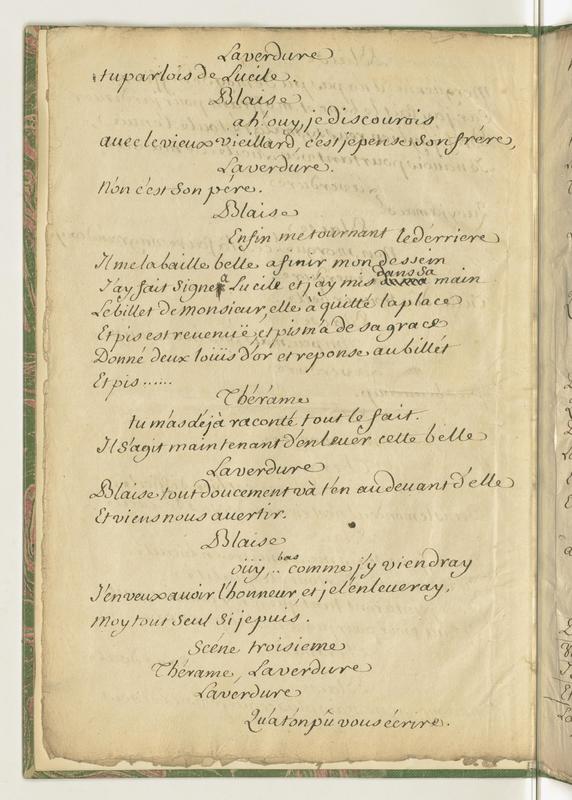 Laverdure
tu parlois de Lucile.
Blaise
ah! ouy, je discourois
avec le vieux vieillard, c'est je pense son frére,
Laverdure.
Non c'est son pére.
Blaise
Enfin me tournant le dérriere
Il me la baille belle a finir mon dessein
J'ay fait signe a Lucile et j'ay mis dans sa main
Le billet de monsieur, elle à quitté la place
Et pis est revenüe, et pis m'a de sa grace
Donné deux loüis d'or et reponse au billét
Et pis ......
Thérame
tu m'as déjà raconté tout le fait.
Il s'agit maintenant d'enlever cette belle
Laverdure
Blaise tout doucement và t'en au devant d'elle
Et viens nous avertir.
Blaise
oüy .. bas comme j'y viendray
J'en veux avoir l'honneur, et je l'enleveray,
Moy tout seul si je puis.
Scéne troisieme
Thérame, Laverdure
Laverdure
Qu'a t'on pû vous écrire.